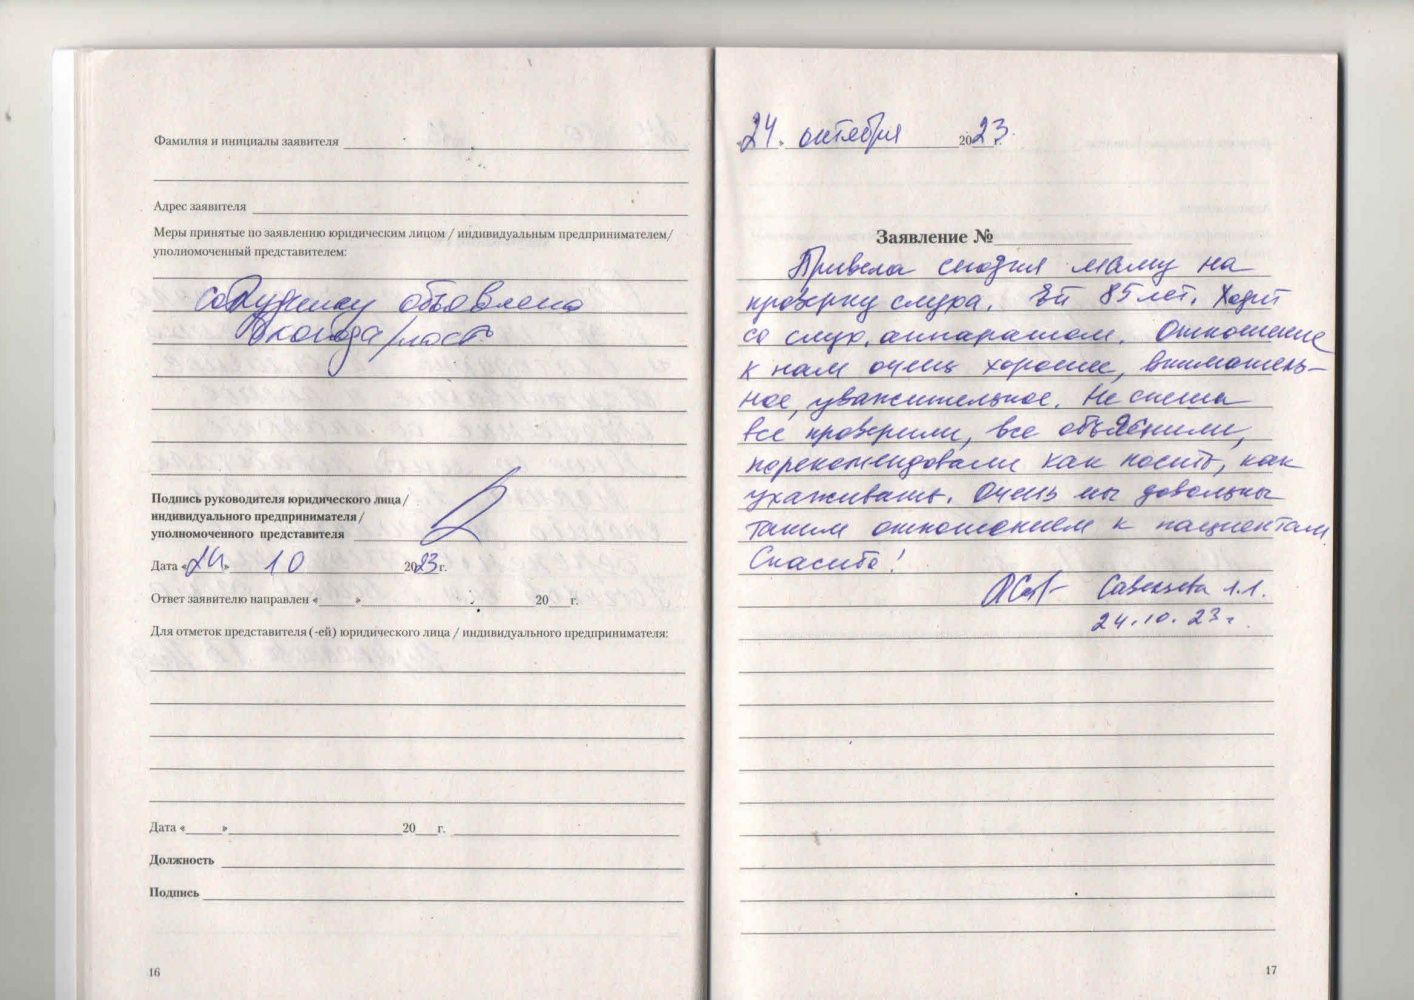 Фамилия и инициалы заявителя
Адрес заявителя
Меры принятые по заявлению юридическим лицом / индивидуальным предпринимателем/
уполномоченный представителем:
сотруднику объявлена
благодарность
Подпись руководителя юридического лица/
индивидуального предпринимателя/
уполномоченного представителя
Дата «24» 10 2023 г.
Ответ заявителю направлен «    »    20    г.
Для отметок представителя (-ей) юридического лица / индивидуального предпринимателя:
Дата «    »    20    г.
Должность
Подпись
16
«24» октября 2023 г.
Заявление №
Привела сюда маму на
проверку слуха. Ей 85 лет. Ходит
со слух. аппаратом. Отношение
к нам очень хорошее, вниматель-
ное, уважительное. Не спеша
все проверили, все объяснили,
порекомендовали как носить, как
ухаживать. Очень мы довольны
таким отношением к пациентам
Спасибо!
24.10.23г.
17